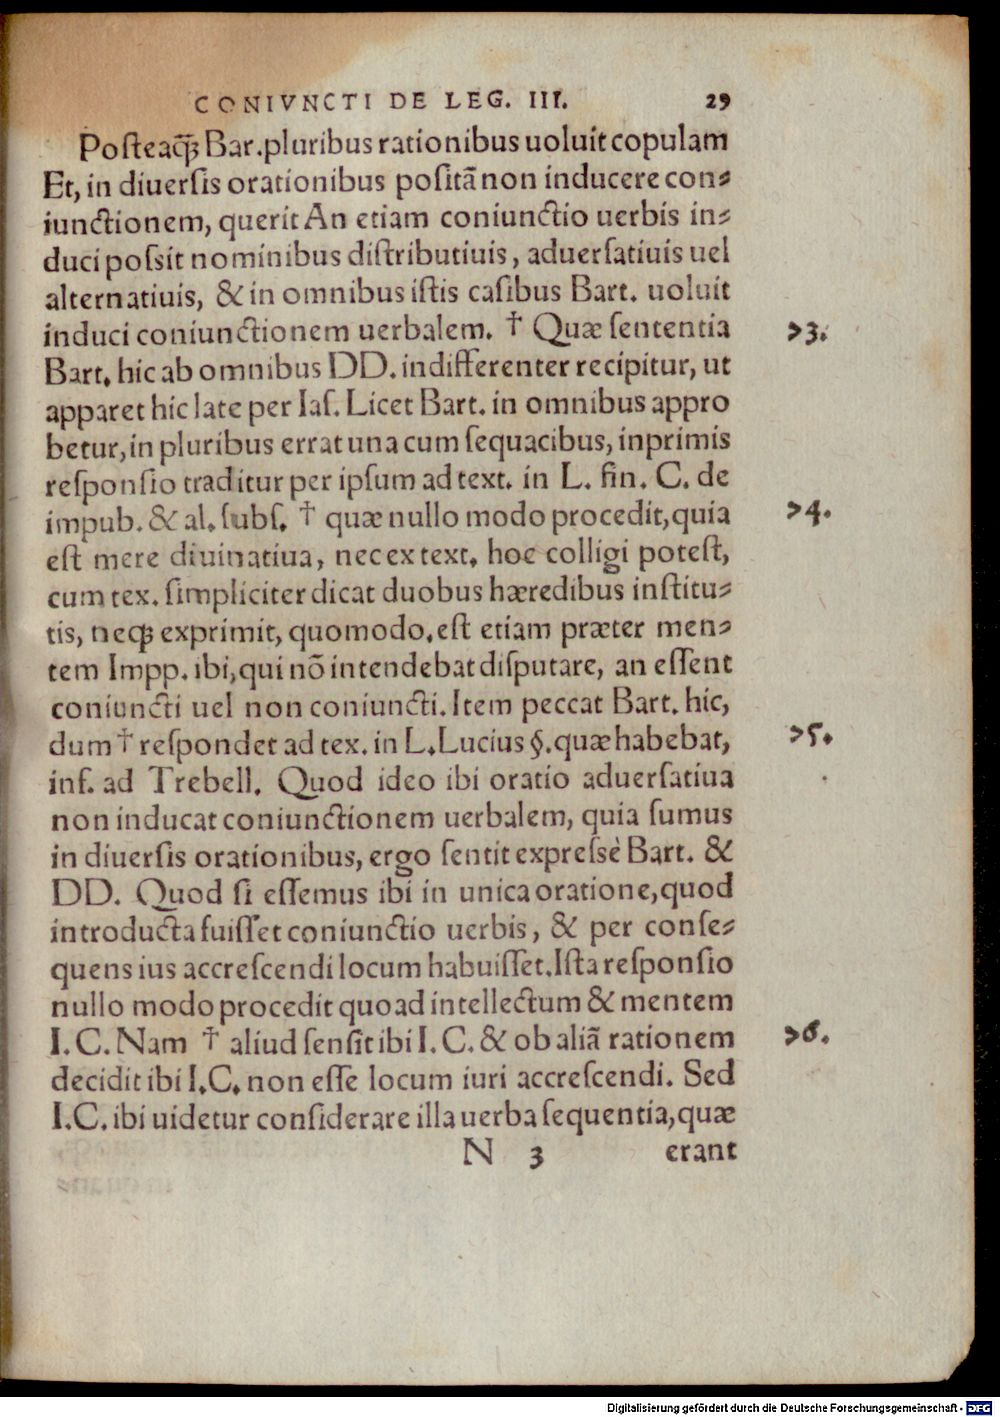 CONIVNCTI DE LEG. III. 29
Posteaq̃ꝫ Bar. pluribus rationibus uoluit copulam
Et, in diuersis orationibus positã non inducere con⸗
iunctionem, querit An etiam coniunctio uerbis in⸗
duci possit nominibus distributiuis, aduersatiuis uel
alternatiuis, & in omnibus istis casibus Bart. uoluit
induci coniunctionem uerbalem. † Quæ sententia 73.
Bart. hic ab omnibus DD. indifferenter recipitur, ut
apparet hic late per Ias. Licet Bart. in omnibus appro
betur, in pluribus errat una cum sequacibus, inprimis
responsio traditur per ipsum ad text. in L. fin. C. de
impub. & al. subs. † quæ nullo modo procedit, quia 74.
est mere diuinatiua, nec ex text. hoc colligi potest,
cum tex. simpliciter dicat duobus hæredibus institu⸗
tis, neqꝫ exprimit, quomodo. est etiam præter men⸗
tem Impp. ibi, qui nõ intendebat disputare, an essent
coniuncti uel non coniuncti. Item peccat Bart. hic,
dum † respondet ad tex. in L. Lucius §. quæ habebat, 75.
inf. ad Trebell. Quod ideo ibi oratio aduersatiua
non inducat coniunctionem uerbalem, quia sumus
in diuersis orationibus, ergo sentit expressè Bart. &
DD. Quod si essemus ibi in unica oratione, quod
introducta fuisset coniunctio uerbis, & per conse⸗
quens ius accrescendi locum habuisset. Ista responsio
nullo modo procedit quoad intellectum & mentem
I. C. Nam † aliud sensit ibi I. C. & ob aliã rationem 76.
decidit ibi I.C. non esse locum iuri accrescendi. Sed
I.C. ibi uidetur considerare illa uerba sequentia, quæ
N 3 erant
Digitalisierung gefördert durch die Deutsche Forschungsgemeinschaft - DFG